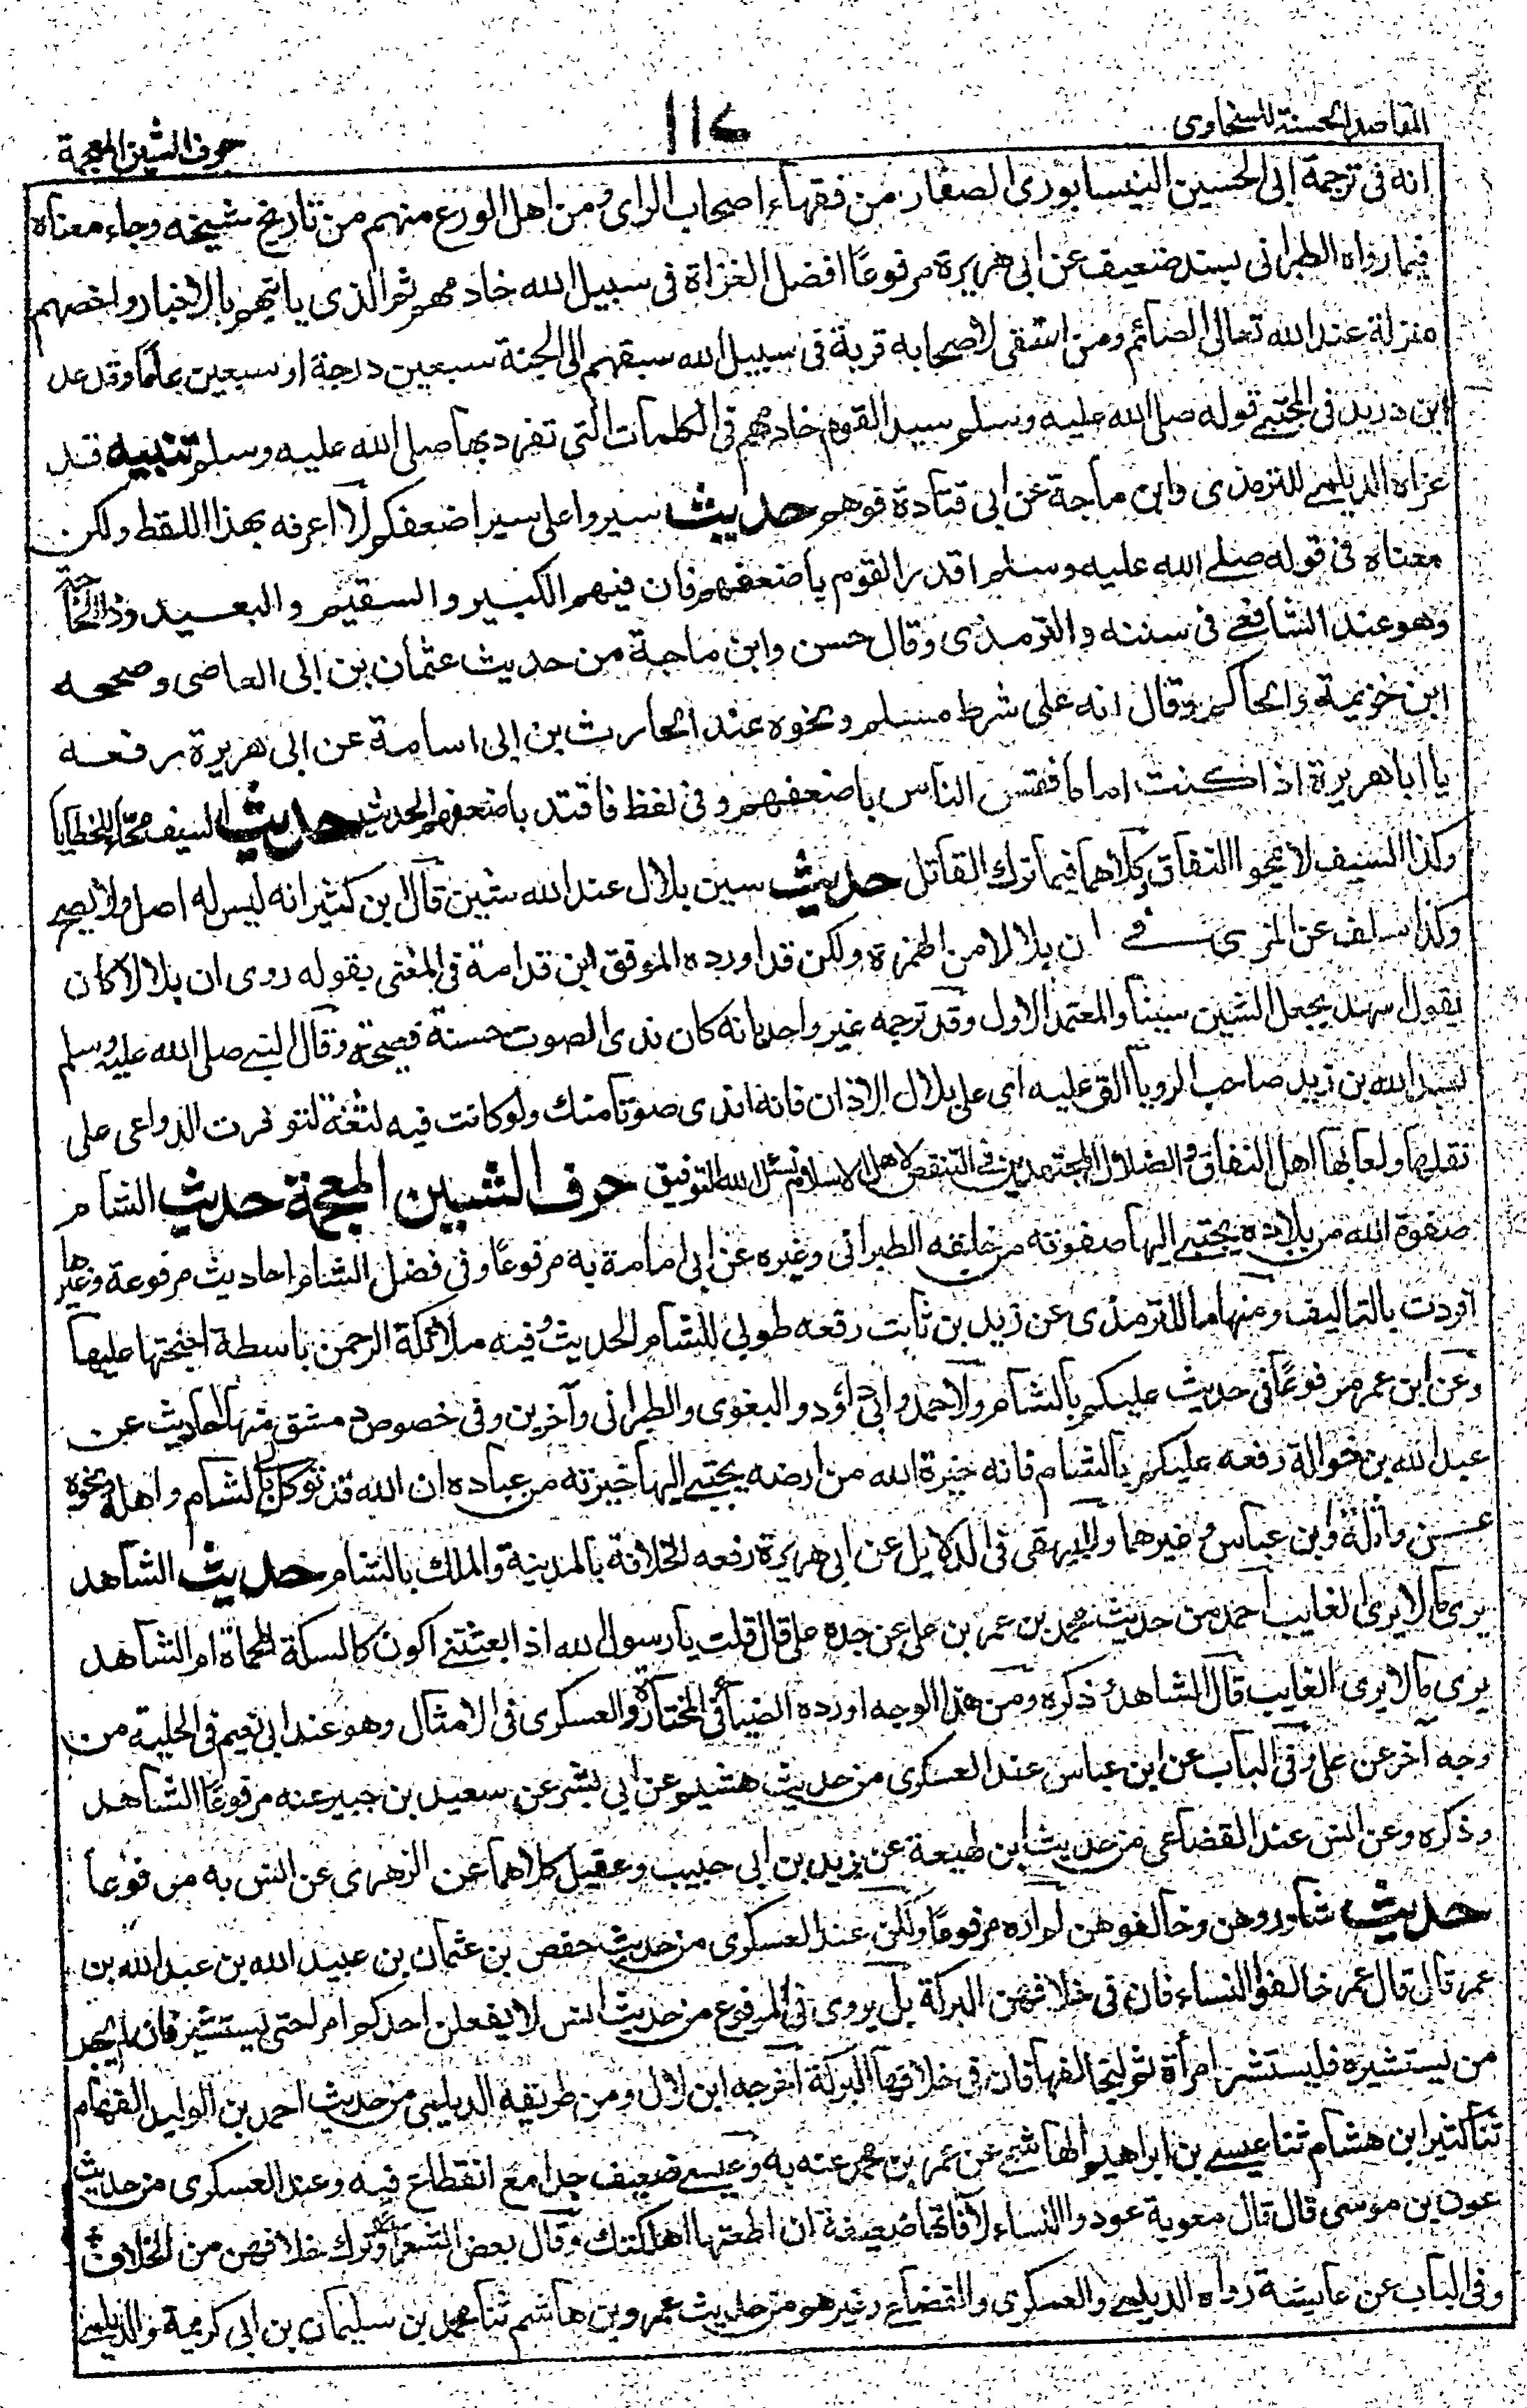 المقاصد الحسنة للسخاوى
١١٢
حرف الشين المعجمة
انه فى ترجمة ابى الحسين النيسابورى الصفار من فقهاء اصحاب الراى ومن اهل الورع منهم من تاريخ شيخه وجاء معناه
فيما رواه الطبرانى بسند ضعيف عن ابى هريرة مرفوعًا افضل الغزاة فى سبيل الله خادمهم ثم الذى ياتيهم بالاخبار واخصهم
منزلة عند الله تعالى الصائم ومن استقى لاصحابه قربة فى سبيل الله سبقهم الى الجنة سبعين درجة او سبعين عامًا وقد عد
ابن دريد فى المجتبى قوله صلى الله عليه وسلم سيد القوم خادمهم فى الكلمات التى تفرد بها صلى الله عليه وسلم تنبيه قد
عزاه الديلمى للترمذى وابن ماجة عن ابى قتادة فوهم حديث سيروا على سير اضعفكم لا اعرفه بهذا اللفظ ولكن
معناه فى قوله صلى الله عليه وسلم اقدر القوم باضعفهم فان فيهم الكبير والسقيم والبعيد وذا الحاجة
وهو عند الشافعى فى سننه والترمذى وقال حسن وابن ماجة من حديث عثمان بن ابى العاصى وصححه
ابن خزيمة والحاكم وقال انه على شرط مسلم ونحوه عند الحارث بن ابى اسامة عن ابى هريرة رفعه
يا ابا هريرة اذا كنت اماما فقس الناس باضعفهم وفى لفظ فاقتد باضعفهم الحديث حديث السيف محّاء للخطايا
وكذا السيف لا يمحو النفاق وكلاهما فيما ترك القاتل حديث سين بلال عند الله شين قال ابن كثير انه ليس له اصل ولا يصح
وكذا سلف عن المزى فى ان بلالا من الهمزة ولكن قد اورده الموفق ابن قدامة فى المغنى بقوله روى ان بلالا كان
يقول اسهد يجعل الشين سينًا والمعتمد الاول وقد ترجمه غير واحد بانه كان ندى الصوت حسنة فصيحة وقال النبى صلى الله عليه وسلم
لعبد الله بن زيد صاحب الرويا القى عليه اى على بلال الاذان فانه اندى صوتا منك ولو كانت فيه لثغة لتوفرت الدواعى على
نقلها ولعابها اهل النفاق والضلال المجتهدين فى التنقص لاهل الاسلام نسئل الله التوفيق حرف الشين المعجمة حديث الشام
صفوة الله من بلاده يجتبى اليها صفوته من خليقه الطبرانى وغيره عن ابى امامة به مرفوعًا وفى فضل الشام احاديث مرفوعة وغيرها
افردت بالتاليف ومنها ما للترمذى عن زيد بن ثابت رفعه طوبى للشام الحديث وفيه ملائكة الرحمن باسطة اجنحتها عليها
وعن ابن عمر مرفوعًا فى حديث عليكم بالشام ولاحمد وابى داؤد والبغوى والطبرانى وآخرين وفى خصوص دمشق منها احاديث عن
عبد الله بن حوالة رفعه عليكم بالشام فانه خيرة الله من ارضه يجتبى اليها خيرته من عباده ان الله قد توكل لى بالشام واهله ونحوه
عن واثلة وابن عباس وغيرهما وللبيهقى فى الدلايل عن ابى هريرة رفعه الخلافة بالمدينة والملك بالشام حديث الشاهد
يرى ما لا يرى الغايب احمد من حديث محمد بن عمر بن على عن جده على قال قلت يا رسول الله اذا بعثتنى اكون كالسكة المحماة ام الشاهد
يرى ما لا يرى الغايب قال الشاهد وذكره ومن هذا الوجه اورده الضياء فى المختارة والعسكرى فى الامثال وهو عند ابى نعيم فى الحلية من
وجه آخر عن على وفى الباب عن ابن عباس عند العسكرى من حديث هشيم عن ابى بشر عن سعيد بن جبير عنه مرفوعًا الشاهد
وذكره وعن انس عند القضاعى من حديث ابن لهيعة عن يزيد بن ابى حبيب وعقيل كلاهما عن الزهرى عن انس به مرفوعا
حديث شاوروهن وخالفوهن لم اره مرفوعًا ولكن عند العسكرى من حديث حفص بن عثمان بن عبيد الله بن عبد الله بن
عمر قال قال عمر خالفوا النساء فان فى خلافهن البركة بل يروى فى المرفوع من حديث انس لا يفعلن احدكم امرا حتى يستشير فان لم يجد
من يستشيره فليستشر امرأة ثم ليخالفها فان فى خلافها البركة اخرجه ابن لال ومن طريقه الديلمى من حديث احمد بن الوليد الفحام
ثنا كثير ابن هشام ثنا عيسى بن ابراهيم الهاشمى عن عمر بن محمد عنه به وعيسى ضعيف جدا مع انقطاع فيه وعند العسكرى من حديث
عون بن موسى قال قال معوية عودوا النساء لا فانها ضعيفة ان اطعتها اهلكتك وقال بعض الشعراء وترك خلافهن من الخلاف
وفى الباب عن عايشة رواه الديلمى والعسكرى والقضاعى وغيرهم من حديث عمرو بن هاشم ثنا محمد بن سليمان بن ابى كريمة والديلمى